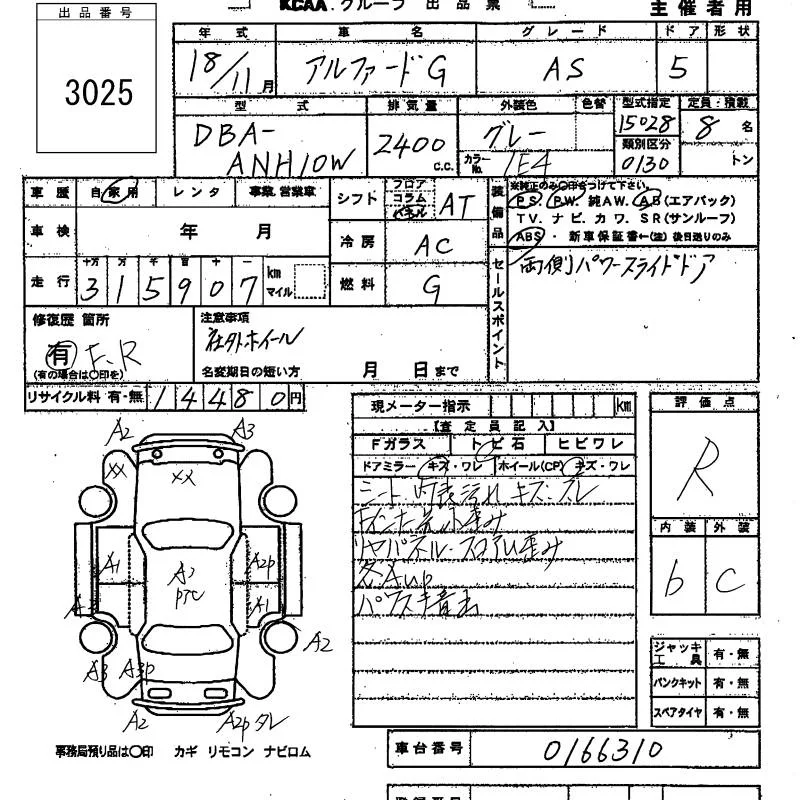 出品番号
3025
KCAA.グループ 出品票
主催者用
年式 車名 グレード ドア 形状
18/11月 アルファードG AS 5
型式 排気量 外装色 色替 型式指定 定員・積載
DBA-ANH10W 2400 c.c. グレー 15028 8名
カラーNo. 1E4 類別区分 0130 トン
車歴 自家用 レンタ 事業.営業車
車検 年 月
走行 十万 万 千 百 十 一
315907 km マイル
シフト フロア コラム パネル AT
冷房 AC
燃料 G
装備品 ※純正のみ○印をつけて下さい。
P.S. P.W. 純AW. AB(エアバック)
TV. ナビ. カワ. SR(サンルーフ)
ABS・新車保証書←(注) 後日送りのみ
セールスポイント
両側パワースライドドア
修復歴 箇所
有 F、R
(有の場合は○印を)
注意事項
社外ホイール
名変期日の短い方 月 日まで
リサイクル料 有・無 14480円
現メーター指示 km
【査定員記入】
Fガラス トビ石 ヒビワレ
ドアミラー キズ・ワレ ホイール(CP) キズ・ワレ
シート 内装汚れ キズ・スレ
リヤパネル・フロア歪み
各AUP
評価点
R
内装 外装
b C
A2 A3
XX XX
A1 A2P
A1
A2
A3 A3P
A2 A2P
ジャッキ工具 有・無
パンクキット 有・無
スペアタイヤ 有・無
事務局預り品は○印 カギ リモコン ナビロム
車台番号 0166310